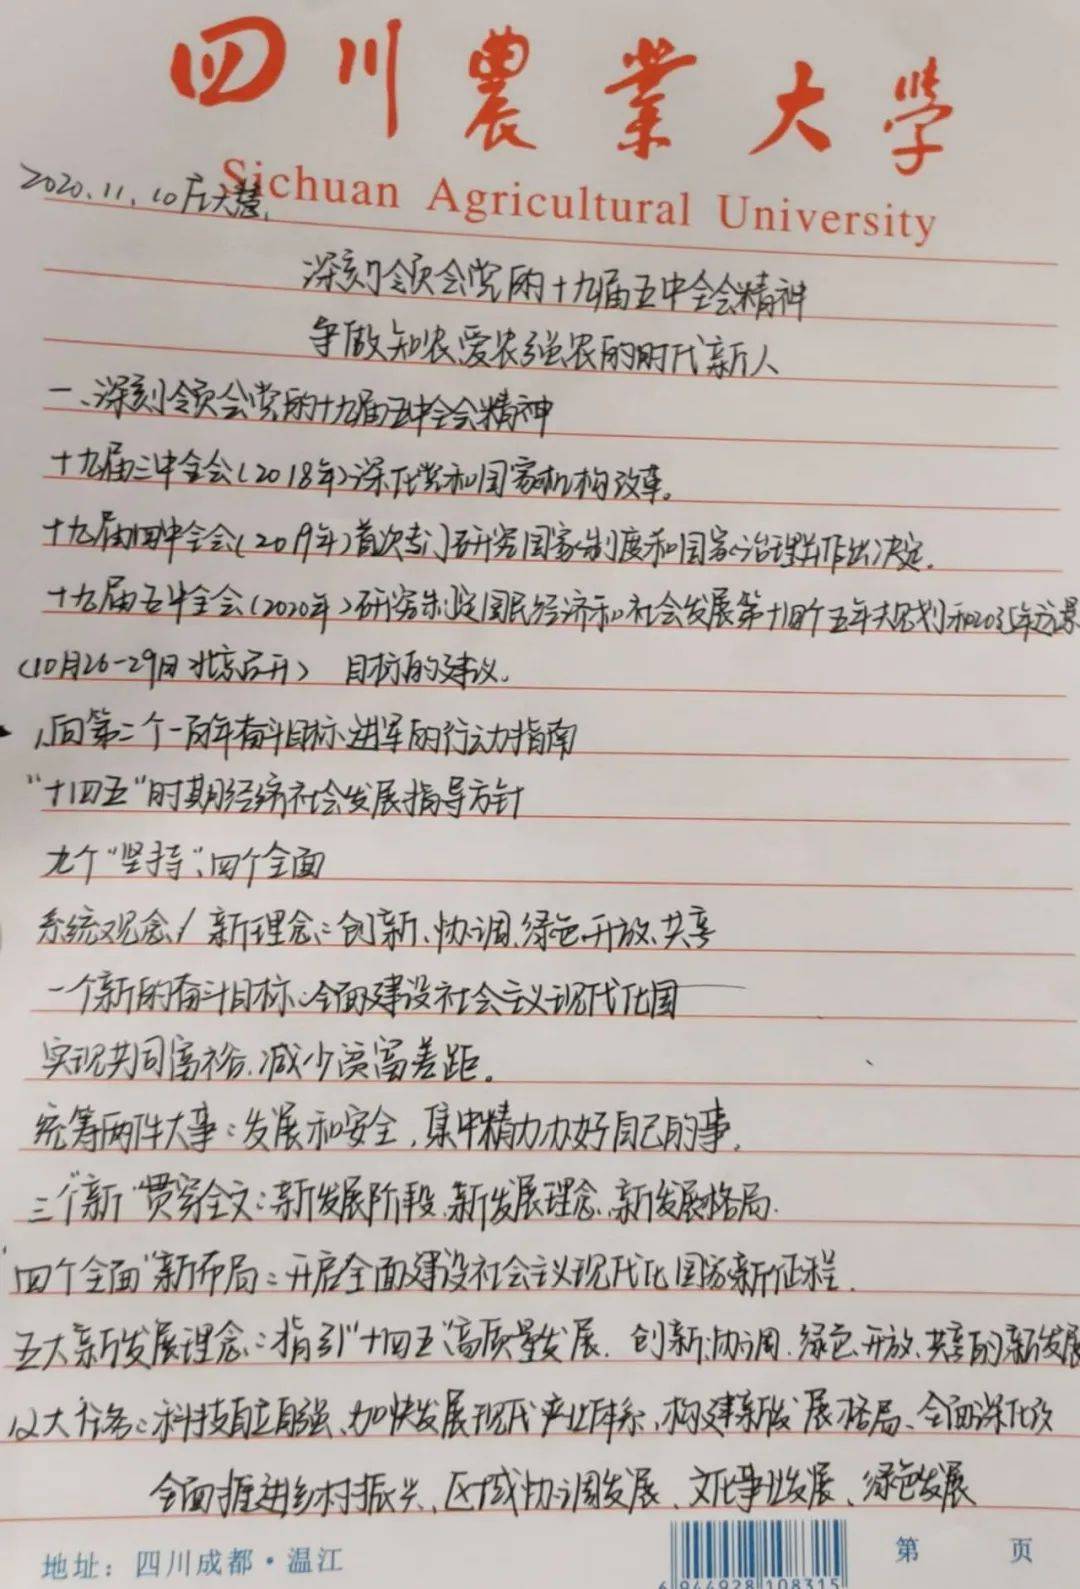 四川農業大学
Sichuan Agricultural University
2020.11.10
深刻领会党的十九届五中全会精神
争做知农爱农强农的时代新人
一、深刻领会党的十九届五中全会精神
十九届三中全会(2018年)深化党和国家机构改革。
十九届四中全会(2019年)首次专门研究国家制度和国家治理并作出决定.
十九届五中全会(2020年)研究制定国民经济和社会发展第十四个五年规划和2035年远景
(10月26-29日北京召开) 目标的建议.
1.向第二个一百年奋斗目标进军的行动指南
"十四五"时期经济社会发展指导方针
九个"坚持"、四个全面
系统观念/新理念:创新、协调、绿色、开放、共享
一个新的奋斗目标:全面建设社会主义现代化国
实现共同富裕.减少贫富差距。
统筹两件大事:发展和安全,集中精力办好自己的事.
三个"新"贯穿全文:新发展阶段、新发展理念、新发展格局.
"四个全面"新布局:开启全面建设社会主义现代化国家新征程.
五大新发展理念:指引"十四五"高质量发展.创新、协调、绿色、开放、共享的新发展
大任务:科技自立自强、加快发展现代产业体系、构建新发展格局、全面深化改
全面推进乡村振兴、区域协调发展、文化事业发展、绿色发展
地址:四川成都·温江
第 页
6 944928 108315